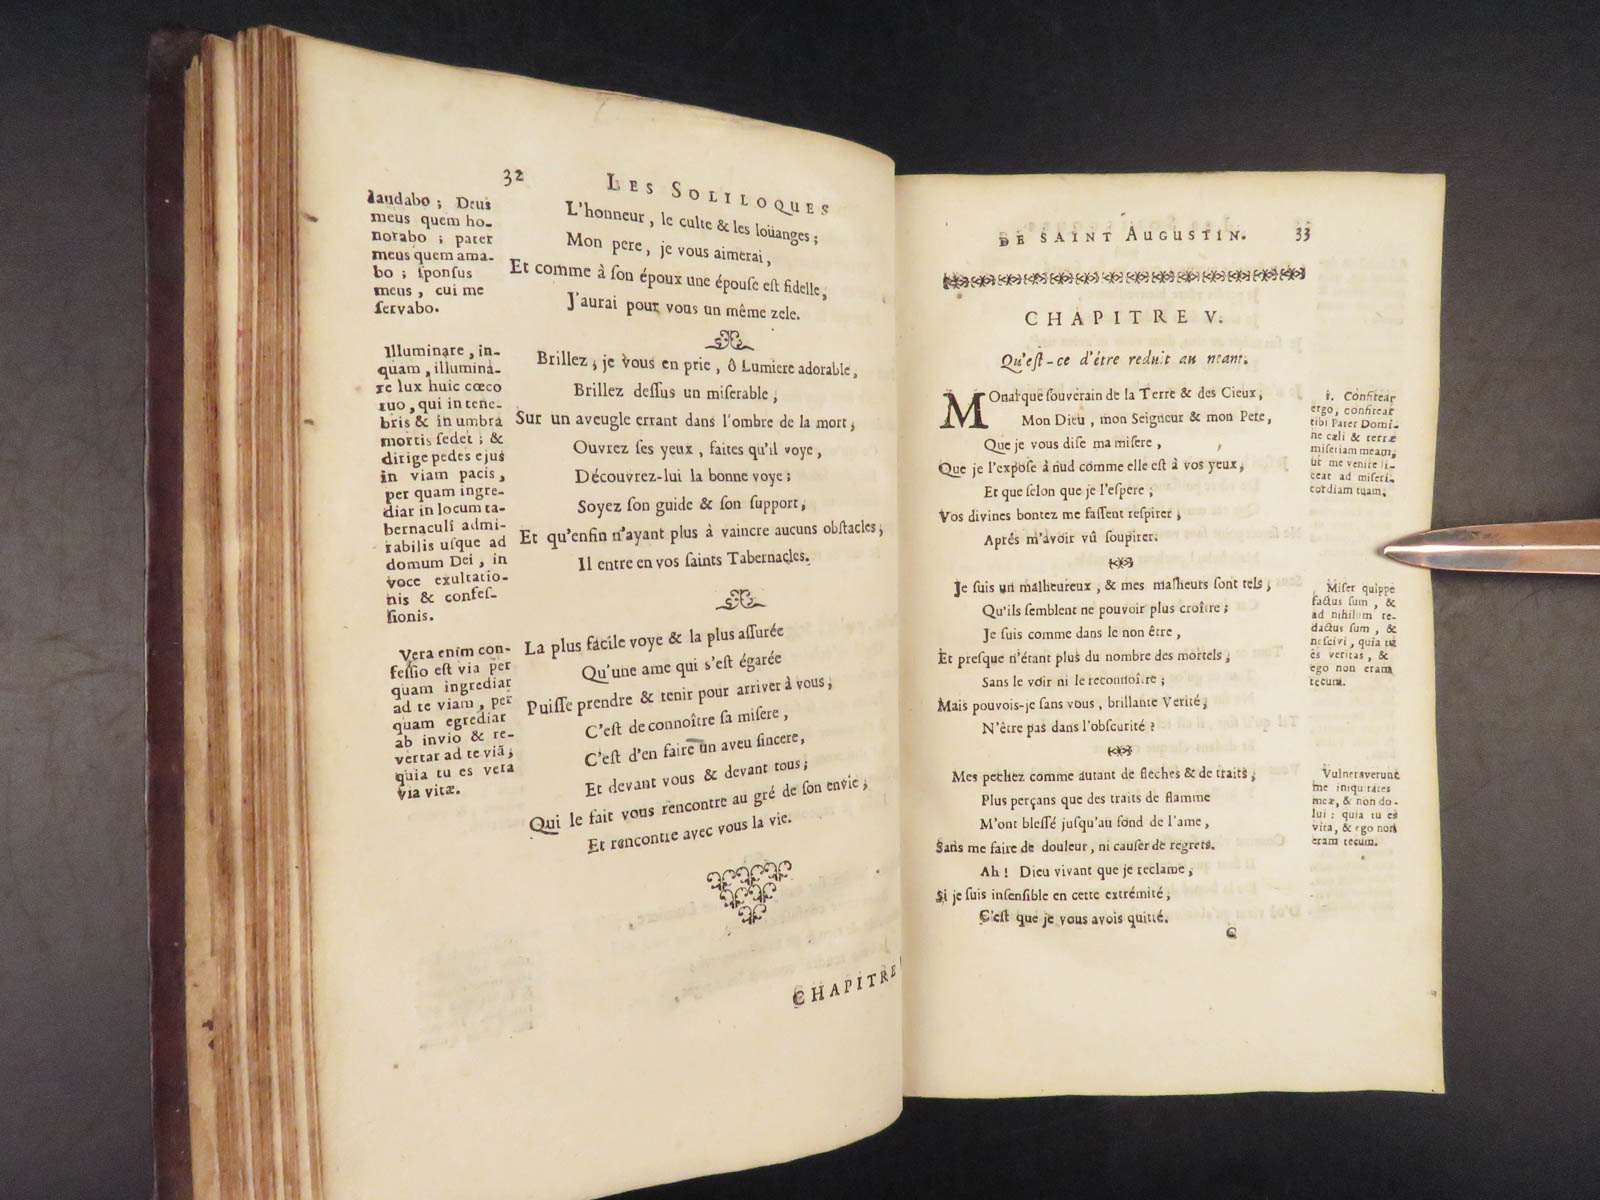 32
LES SOLILOQUES
laudabo ; Deus
meus quem ho-
norabo ; pater
meus quem ama-
bo ; ſponſus
meus , cui me
ſervabo.
Illuminare , in-
quam , illumina-
re lux huic cœco
tuo , qui in tene-
bris & in umbra
mortis ſedet ; &
dirige pedes ejus
in viam pacis ,
per quam ingre-
diar in locum ta-
bernaculi admi-
rabilis uſque ad
domum Dei , in
voce exultatio-
nis & confeſ-
ſionis.
Vera enim con-
feſſio eſt via per
quam ingrediar
ad te viam , per
quam egrediar
ab invio & re-
vertar ad te viã ;
quia tu es vera
via vitæ.
L'honneur , le culte & les loüanges ;
Mon pere, je vous aimerai,
Et comme à ſon époux une épouſe eſt fidelle ,
J'aurai pour vous un même zele.
Brillez , je vous en prie , ô Lumiere adorable ,
Brillez deſſus un miſerable ,
Sur un aveugle errant dans l'ombre de la mort ,
Ouvrez ſes yeux , faites qu'il voye ,
Découvrez-lui la bonne voye ;
Soyez ſon guide & ſon ſupport ,
Et qu'enfin n'ayant plus à vaincre aucuns obſtacles ,
Il entre en vos ſaints Tabernacles.
La plus facile voye & la plus aſſurée
Qu'une ame qui s'eſt égarée
Puiſſe prendre & tenir pour arriver à vous ,
C'eſt de connoître ſa miſere ,
C'eſt d'en faire un aveu ſincere,
Et devant vous & devant tous ;
Qui le fait vous rencontre au gré de ſon envie ,
Et rencontre avec vous la vie.
CHAPITRE
DE SAINT AUGUSTIN.
33
CHAPITRE V.
Qu'eſt-ce d'être reduit au neant.
MOnarque ſouverain de la Terre & des Cieux,
Mon Dieu , mon Seigneur & mon Pere,
Que je vous diſe ma miſere ,
Que je l'expoſe à nud comme elle eſt à vos yeux ,
Et que ſelon que je l'eſpere ;
Vos divines bontez me faſſent reſpirer ,
Aprés m'avoir vû ſoupirer.
Je ſuis un malheureux , & mes malheurs ſont tels ,
Qu'ils ſemblent ne pouvoir plus croître ;
Je ſuis comme dans le non être ,
Et preſque n'étant plus du nombre des mortels ,
Sans le voir ni le reconnoître ;
Mais pouvois-je ſans vous , brillante Verité ,
N'être pas dans l'obſcurité ?
Mes pechez comme autant de fleches & de traits ,
Plus perçans que des traits de flamme
M'ont bleſſé juſqu'au fond de l'ame ,
Sans me faire de douleur, ni cauſer de regrets.
Ah ! Dieu vivant que je reclame ,
Si je ſuis inſenſible en cette extrémité ,
C'eſt que je vous avois quitté.
C
1. Confitear
ergo, confitear
tibi Pater Domi-
ne cæli & terræ
miſeriam meam,
ut me venire li-
ceat ad miſeri-
cordiam tuam.
Miſer quippe
factus ſum , &
ad nihilum re-
dactus ſum , &
neſcivi , quia tu
es veritas , &
ego non eram
tecum.
Vulneraverunt
me iniquitates
meæ, & non do-
lui : quia tu es
vita, & ego non
eram tecum.